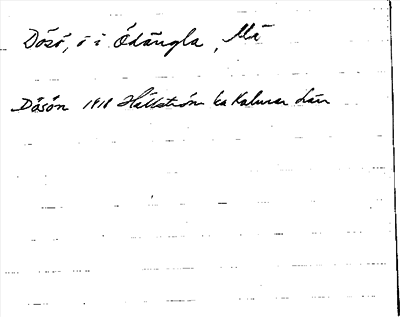 Dösö, ö i Ödängla, Mä
Dösön 1918 Hällström ka Kalmar län